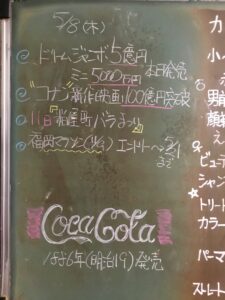 5/8(木)
ドリームジャンボ5億円
ミニ5000万円 本日発売
"コナン"新作映画100億円突破
11日 バラまつり
福岡マラソン エントリー 5/
まで
CocaCola
1886年(明治19)発売
カ
小
男
顔
え
ビューテ
シャン
トリート
カラー
パーマ
ストレート